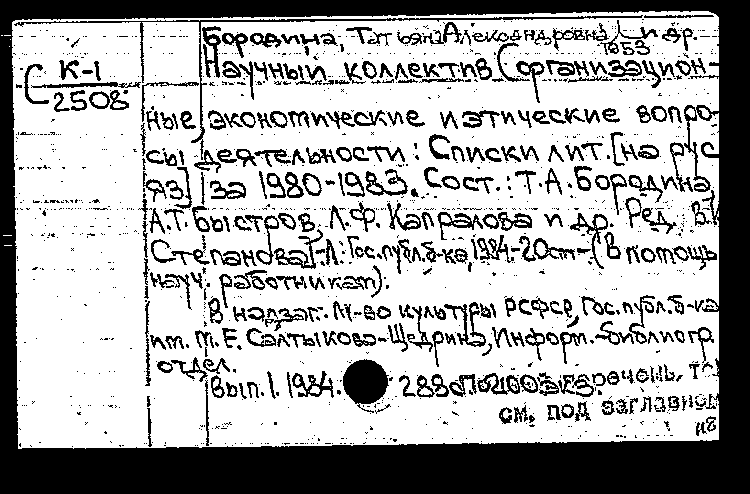 Бородина, Татьяна Александровна, и др.
1953
С К-1
2508
Научный коллектив (организацион-
ные, экономические и этические вопро-
сы деятельности: Списки лит. [на рус
яз] за 1980-1983. Сост.: Т.А. Бородина,
А.Т. Быстров, Л.Ф. Капралова и др. Ред. В.К
Степанова]-Л.: Гос. публ. б-ка, 1984.-20cm-(В помощь
науч. работникам).
В надзаг.: М-во культуры РСФСР, Гос. публ. б-ка
им. М.Е. Салтыкова-Щедрина, Информ.-библиогр.
отдел.
Вып. 1. 1984. 288с. 2003экз.
перечень,
см. под заглавием
118